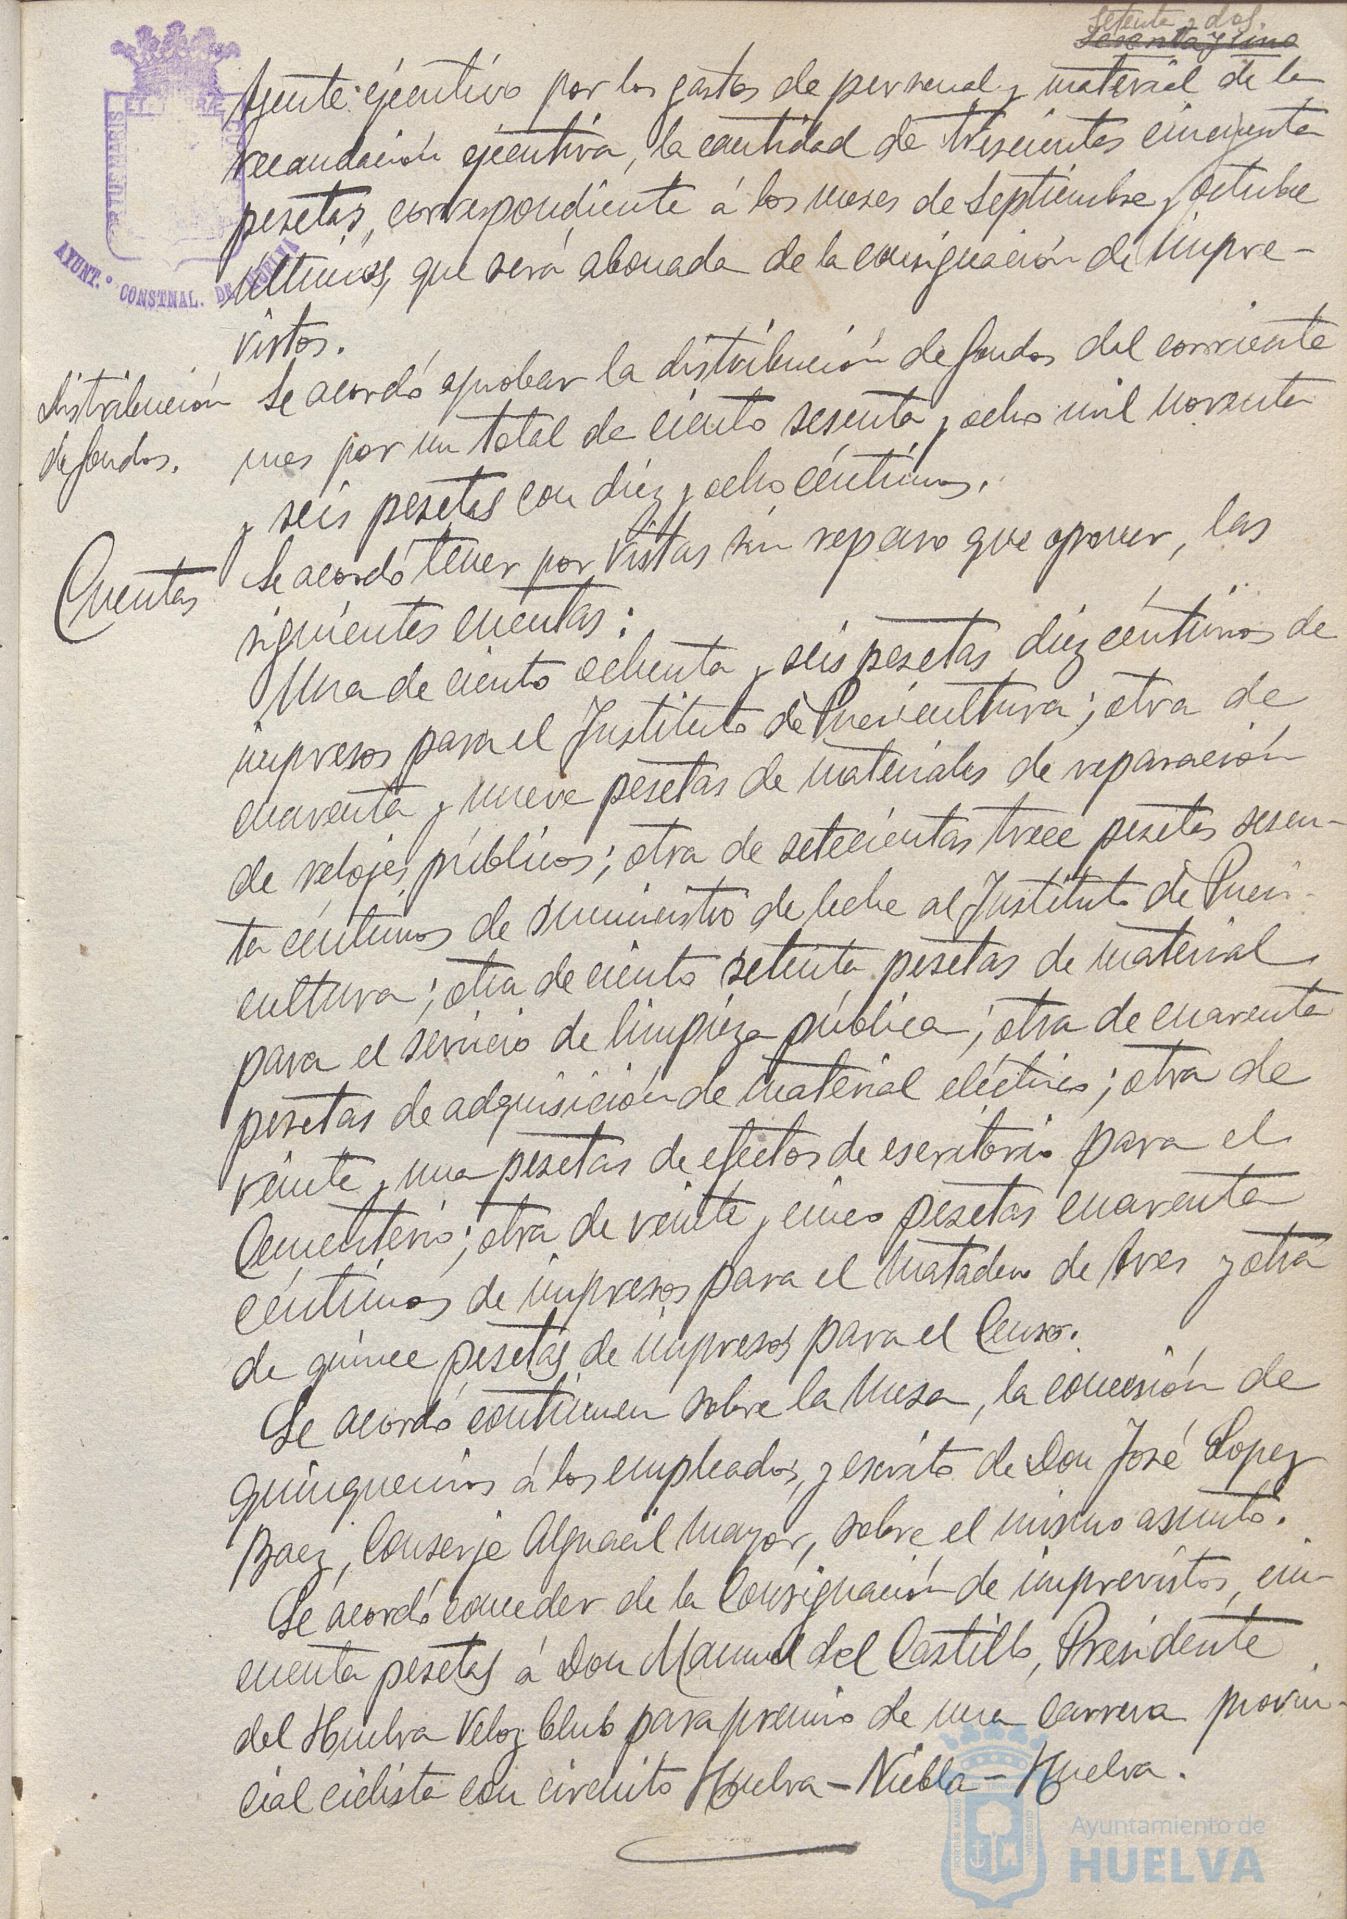 Setenta y dos.
Sesenta y uno
Agente ejecutivo por los gastos de personal y material de la
recaudación ejecutiva, la cantidad de trescientas cincuenta
pesetas, correspondiente á los meses de Septiembre y Octubre
últimos, que será abonada de la consignación de impre-
vistos.
distribución
de fondos.
Se acordó aprobar la distribución de fondos del corriente
mes por un total de ciento sesenta y ocho mil noventa
y seis pesetas con diez y ocho céntimos.
Cuentas
Se acordó tener por vistas sin reparo que oponer, las
siguientes cuentas:
Una de ciento ochenta y seis pesetas diez céntimos de
impresos para el Instituto de Puericultura; otra de
cuarenta y nueve pesetas de materiales de reparación
de relojes públicos; otra de setecientas trece pesetas sesen-
ta céntimos de suministro de leche al Instituto de Pueri-
cultura; otra de ciento setenta pesetas de material
para el servicio de limpieza pública; otra de cuarenta
pesetas de adquisición de material eléctrico; otra de
veinte y una pesetas de efectos de escritorio para el
Cementerio; otra de veinte y cinco pesetas cuarenta
céntimos de impresos para el Matadero de Aves y otra
de quince pesetas de impresos para el Censo.
Se acordó continuen sobre la Mesa, la concesión de
quinquenios á los empleados, y escrito de Don José Lopez
Baez, Conserje Alguacil Mayor, sobre el mismo asunto.
Se acordó conceder de la Consignación de imprevistos, cin-
cuenta pesetas á Don Manuel del Castillo, Presidente
del Huelva Veloz Club para premio de una Carrera provin-
cial ciclista con circuito Huelva - Niebla - Huelva.
AYUNT.º CONSTNAL. DE HUELVA
PORTUS MARIS ET TERRAE CUSTODIA
Ayuntamiento de
HUELVA